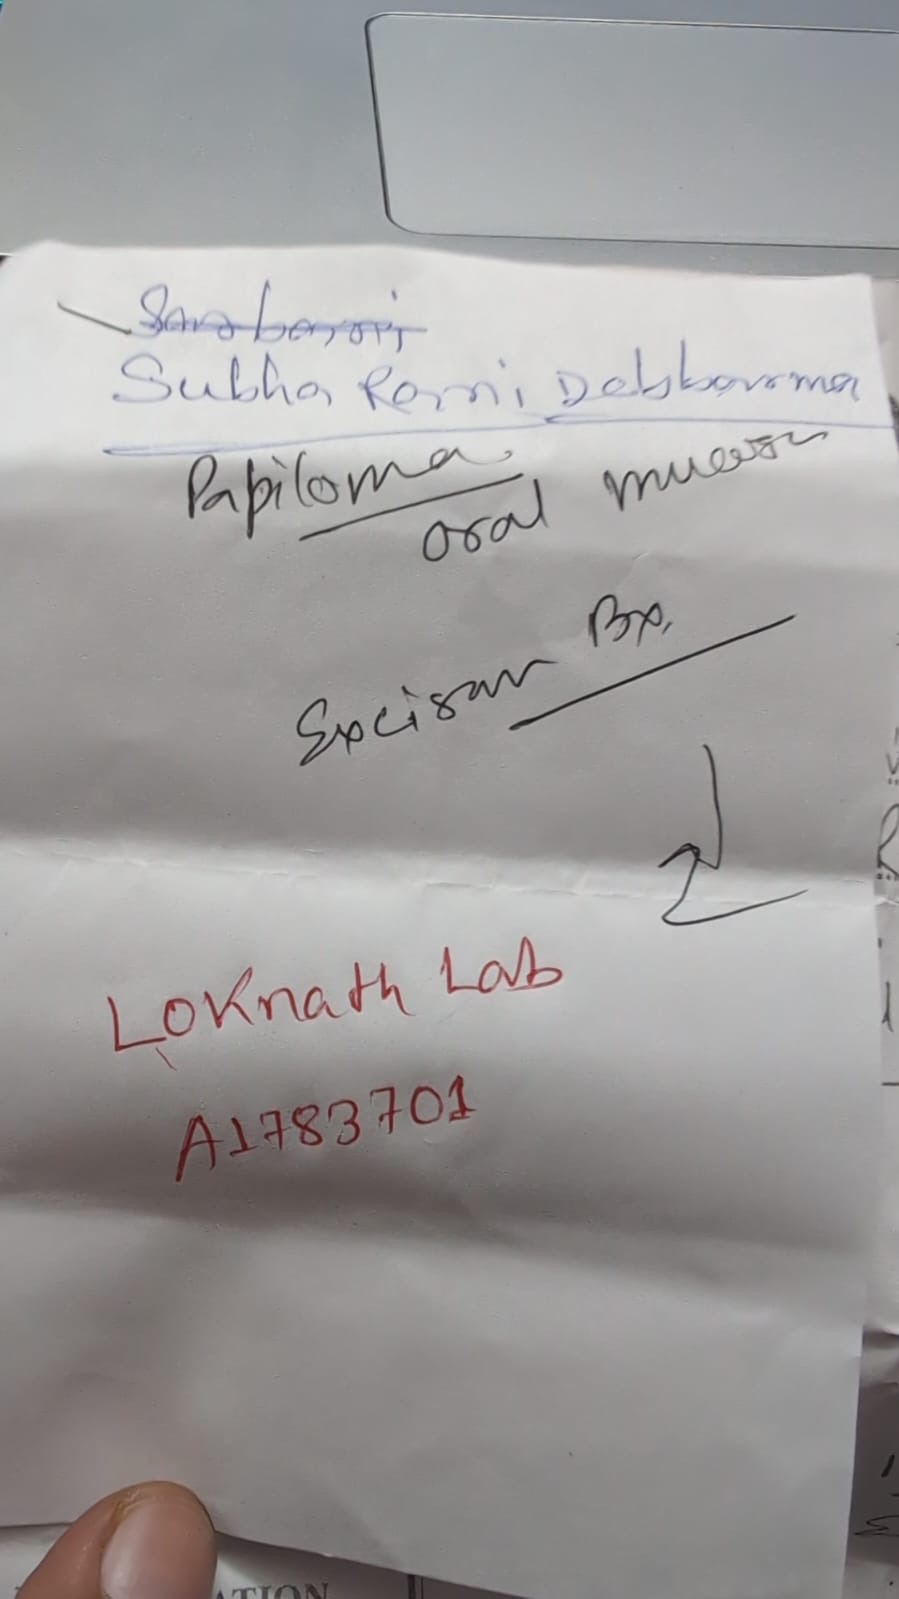 Subha Rani Debbarma
Papiloma
oral mucosa
Excison Bx.
Loknath Lab
A1783701
ATION